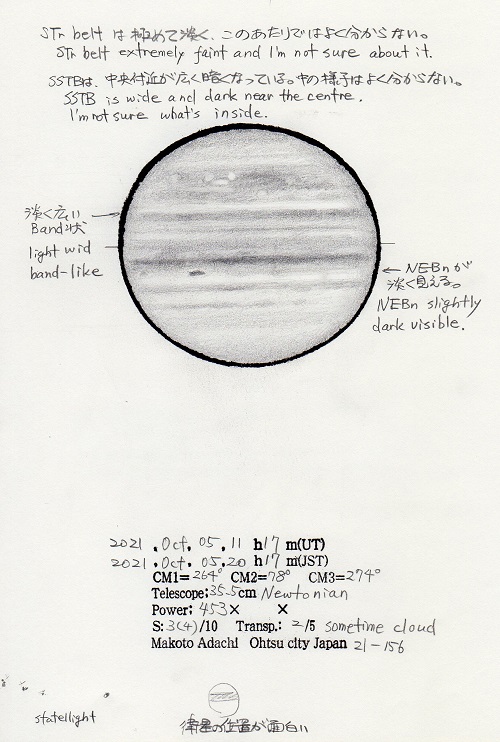 STr belt は極めて淡く、このあたりではよく分からない。
STr belt extremely faint and I'm not sure about it.
SSTBは、中央付近が広く暗くなっている。中の様子はよく分からない。
SSTB is wide and dark near the centre.
I'm not sure what's inside.
淡く広い
Band状
light wid
band-like
← NEBnが
淡く見える。
NEBn slightly
dark visible.
2021 . Oct. 05 . 11 h17 m(UT)
2021 . Oct. 05 . 20 h17 m(JST)
CM1=264° CM2=78° CM3=274°
Telescope:35.5cm Newtonian
Power: 453× ×
S: 3(4)/10 Transp.: 2/5 sometime cloud
Makoto Adachi Ohtsu city Japan 21-156
statellight
衛星の位置が面白い